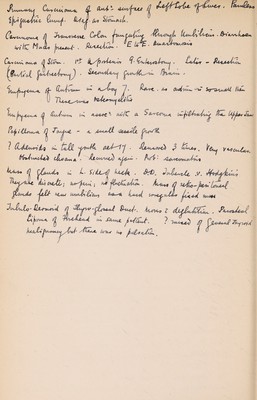 Primary Carcinoma of ant: surface of Left Lobe of Liver. Painless
Epigastric Lump. Diag. as Stomach.
Carcinoma of Transverse Colon fungating through Umbilicus. Diarrhoea
with Mucus present. Resection. E to E. anastomosis
Carcinoma of Stom. 1st Exploration & G. Enterostomy. Later - Resection
(Partial Gastrectomy). Secondary growth in Brain.
Empyema of Antrum in a boy 7. Rare. as antrum is so small then
There was osteomyelitis
Empyema of Antrum in assocn with a Sarcoma infiltrating the Upper Jaw
Papilloma of Tongue - a small sessile growth
? Adenoids in tall youth aet 17. Removed 3 times. Very vascular.
Obstructed choana. Removed again. Prob: sarcomatous
Mass of Glands in L. side of neck. D.D. Tubercle v. Hodgkins
They are discrete; no pain; no fluctuation. Mass of retro-peritoneal
glands felt near umbilicus as a hard irregular fixed mass
Tubulo-Dermoid of Thyro-glossal Duct. moves c deglutition.
Lipoma of Forehead in same patient. ? missed of General Thyroid
malignancy but there was no pulsation.